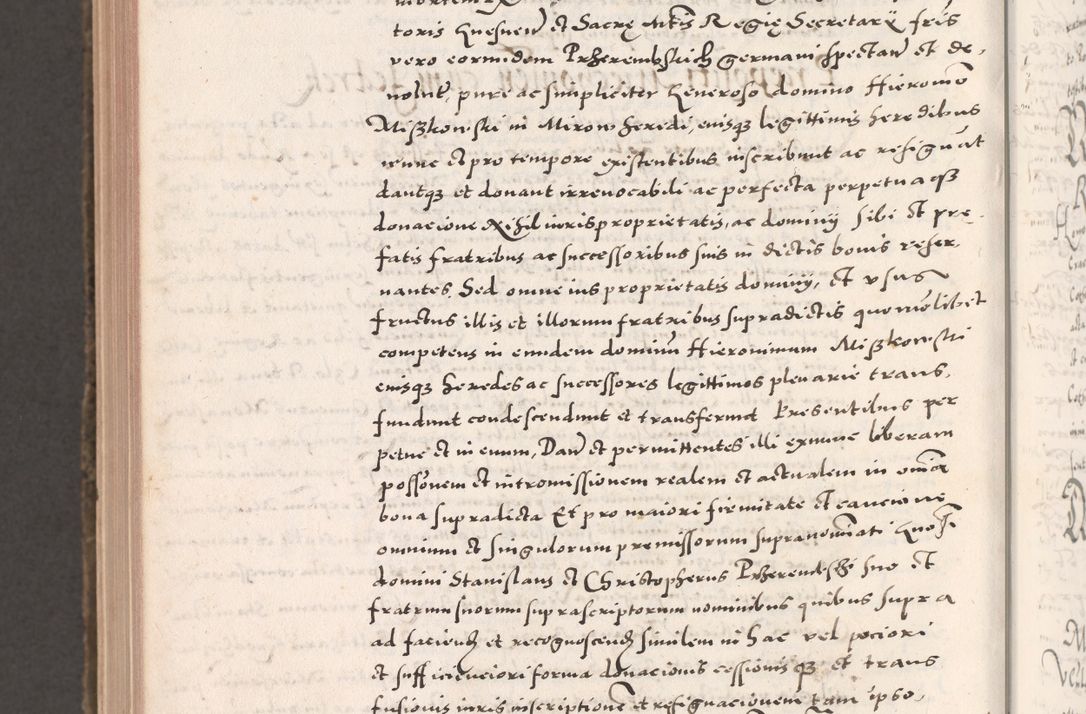 toris Gnesnen et Sacrę Mtis Regię Secretarij fris
vero eormidem Przerembskich germani spectan et de,
nolut, pure ac simpliciter Generoso domino Hieronimo
Miszkowski in Mirow heredi, eiusqz legittimis heredibus
nunc et pro tempore existentibus inscribunt ac resignāt
dantqz et donant irrevocabili ac perfecta perpetuaqz
donacione Nihil iuris proprietatis, ac dominij sibi et pre
fatis fratribus ac successoribus suis in dictis bonis reser,
uantes, Sed omne ius proprietatis dominij, et vsus
fructus illis et illorum fratribus supradictis quomōlibet
competens in eundem dominū Hieronimum Miszkowski
eiusqz heredes ac successores legittimos plenarie trans,
fundunt condescendunt et transferunt Presentibus per
petue et in euum, Dan et permittentes illi exnunc liberam
possonem et intromissionem realem et actualem in omia
bona supradicta Et pro maiori firmitate et caucione
omnium et singulorum premissorum supranomiati Gnosi
domini Stanislaus et Christopherus Przerembski suo et
fratrum suorum suprascriptorum nominibus quibus supra
ad faciend et recognoscend similem in hac vel pociori
et sufficiencióri forma donacionis cessionisqz et trans
fusionis iuris inscriptione et resignacionem tam ipso,